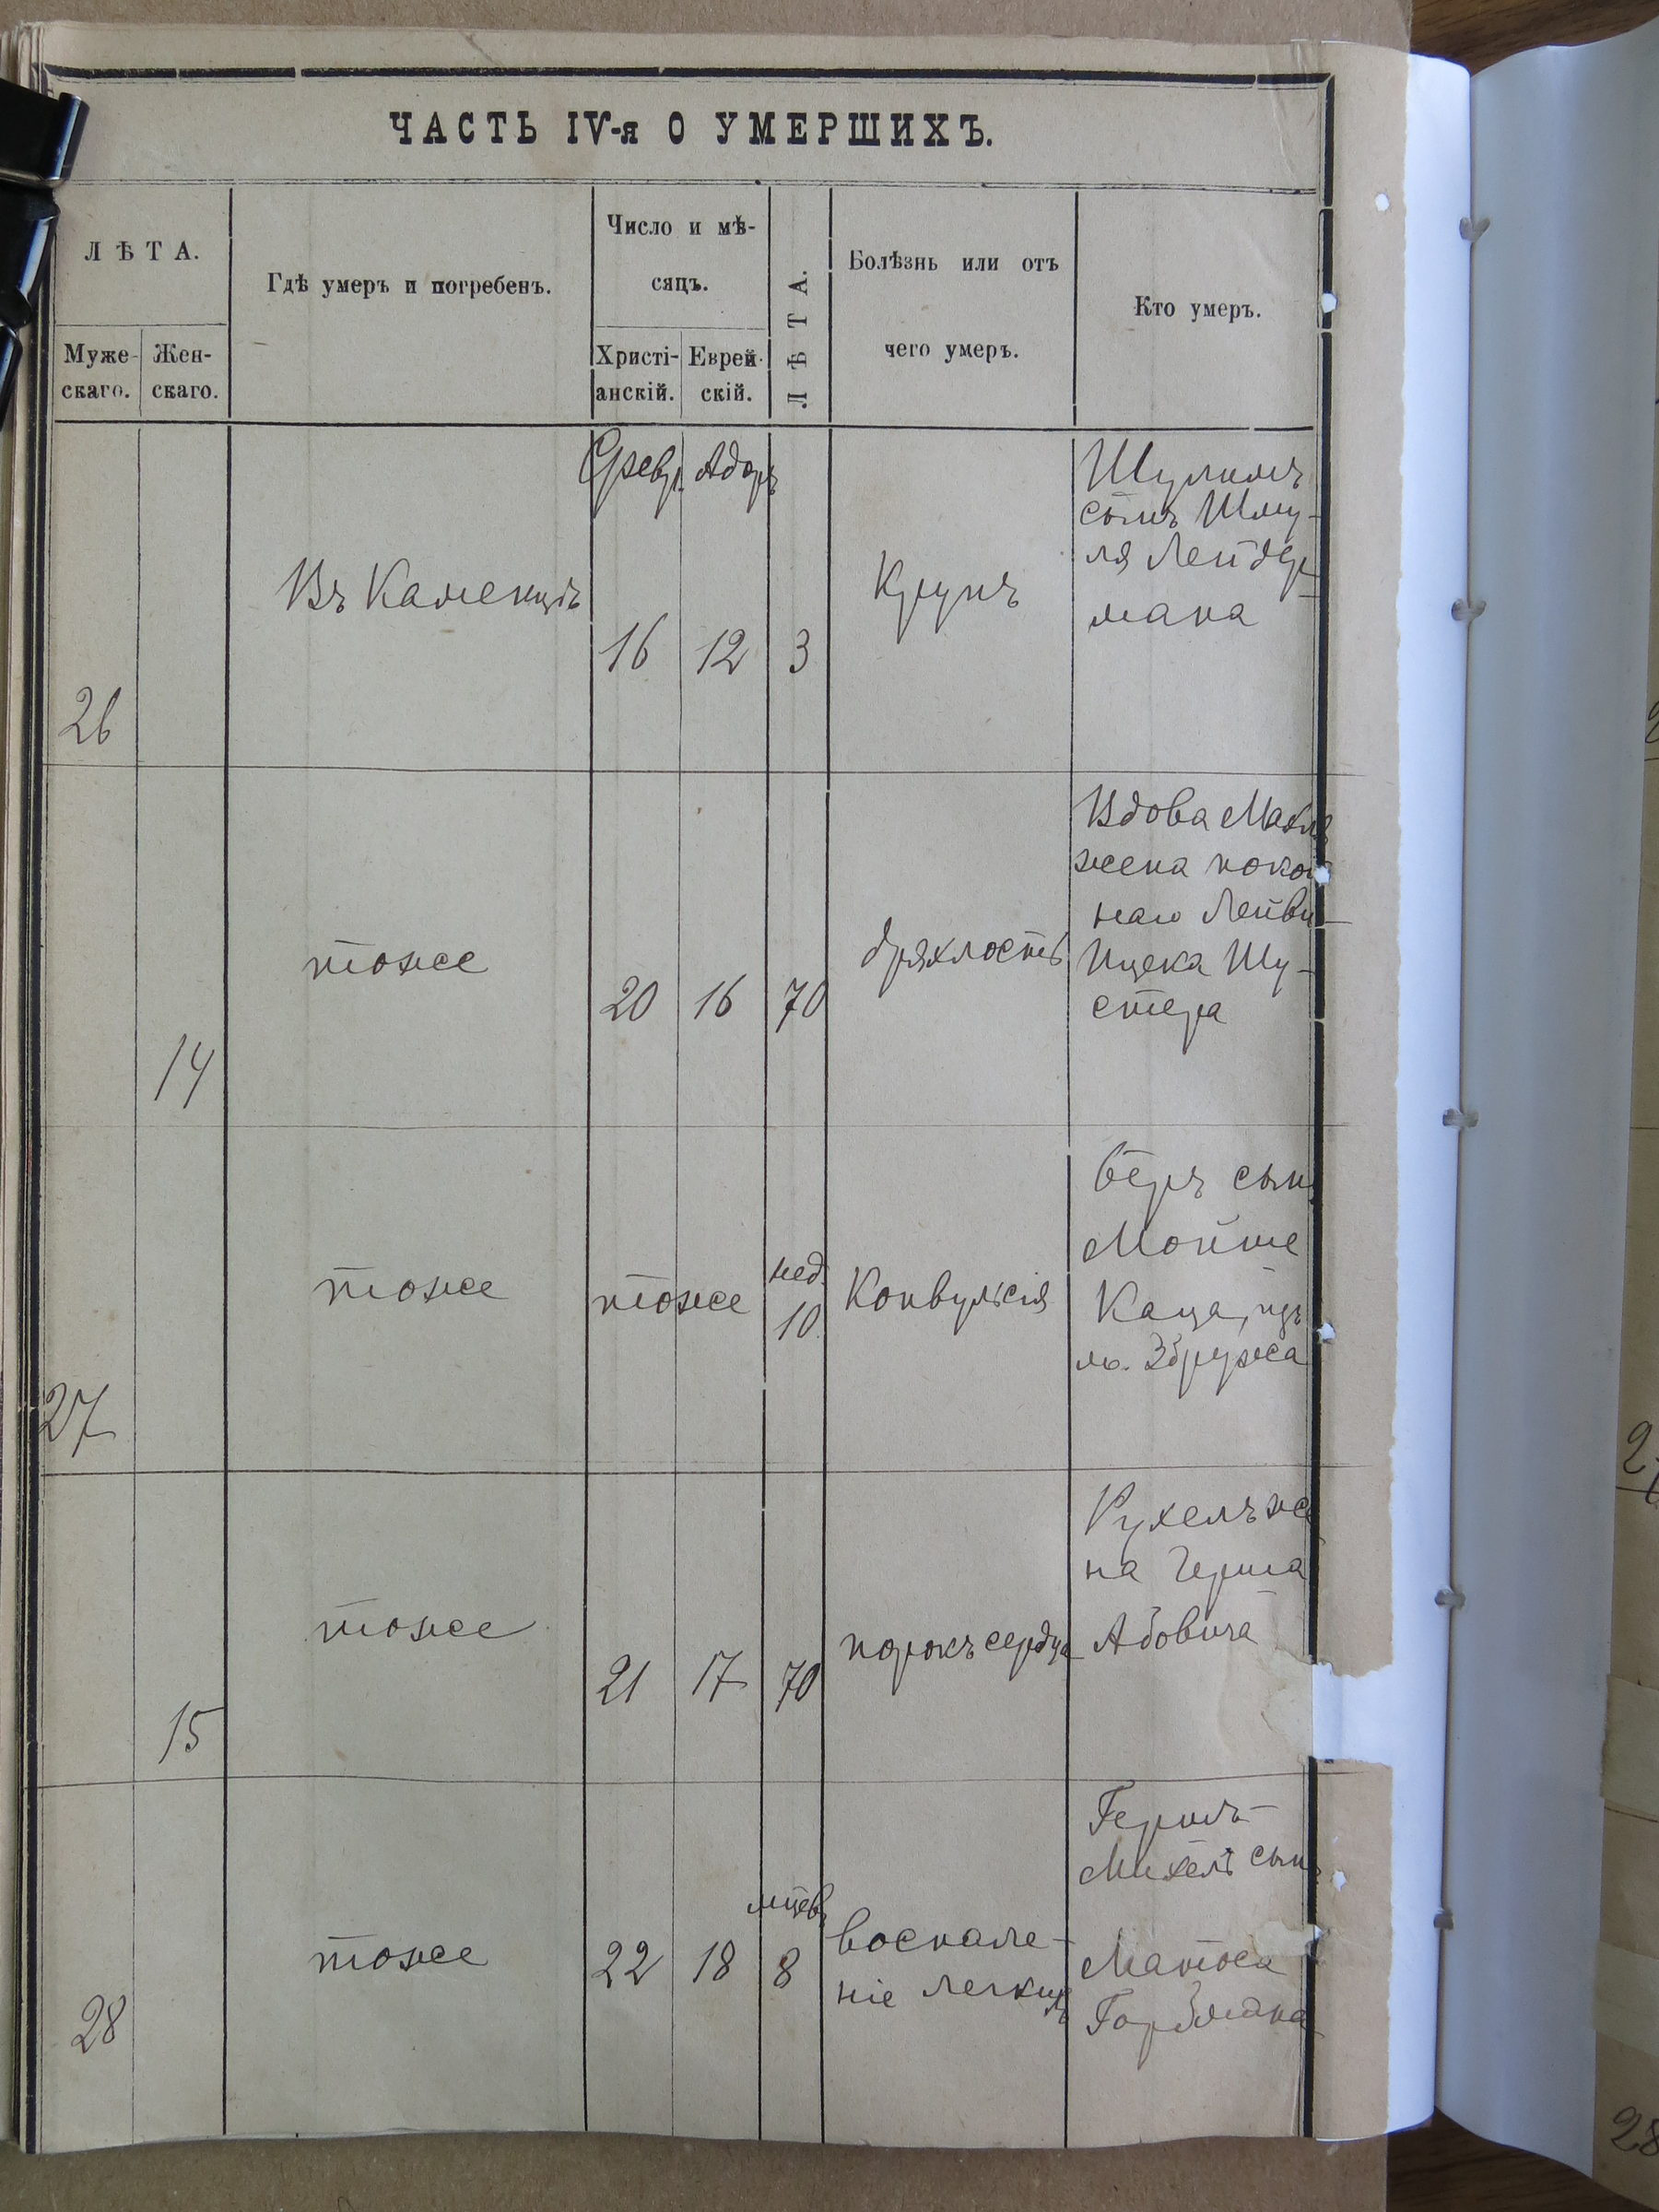 ЧАСТЬ IV-я О УМЕРШИХЪ.
ЛѢТА.
Муже-
скаго.
Жен-
скаго.
Гдѣ умеръ и погребенъ.
Число и мѣ-
сяцъ.
Христі-
анскій.
Еврей-
скій.
ЛѢТА.
Болѣзнь или отъ
чего умеръ.
Кто умеръ.
26
Въ Каменцѣ
Февр. Адаръ
16 12 3
Крупъ
Шулимъ
сынъ Шму-
ля Лейдер-
мана
14
тоже
20 16 70
дряхлость
Вдова
жена покой
наго Лейви-
Ицека Шу-
стера
27
тоже
тоже
нед.
10
Конвульсія
Беръ сынъ
Мойше
Каца, изъ
м. Збрижа
15
тоже
21 17 70
порокъ сердца
Рухель же
на Герша
Абовича
28
тоже
22 18
мцевъ
8
воспале-
ніе легкихъ
Гершъ-
Михель сынъ
Матоса